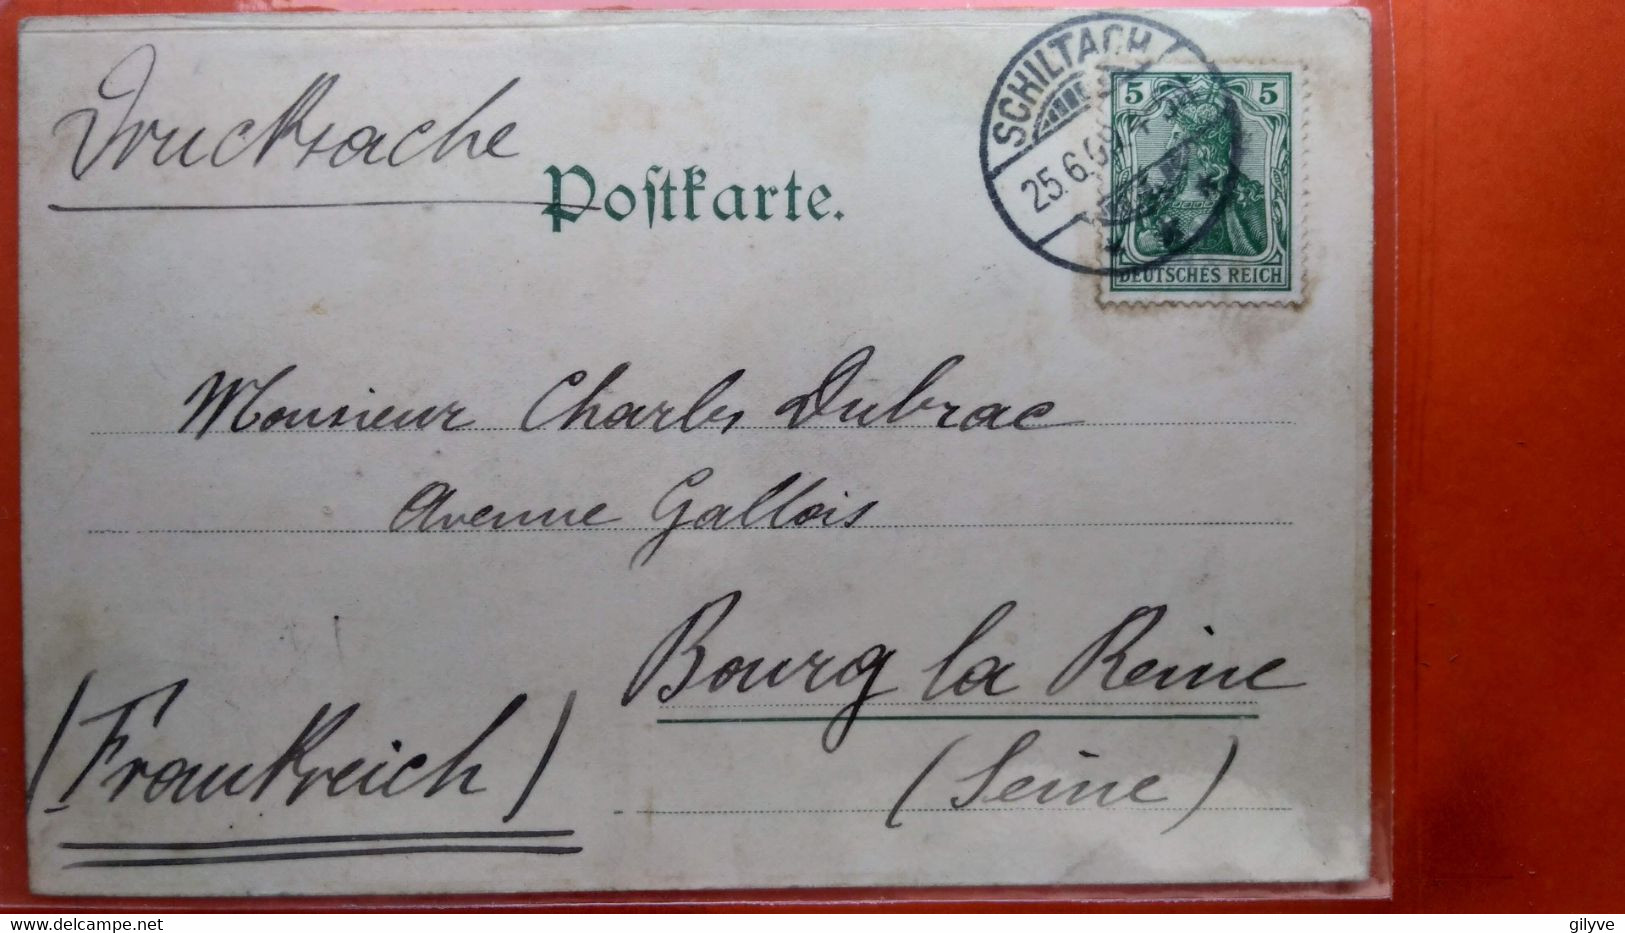 Drucksache
Postkarte.
SCHILTACH
25.6.
5 5
DEUTSCHES REICH
Monsieur Charles Dubrac
Avenue Gallois
Bourg la Reine
(Seine)
(Frankreich)
gilyve